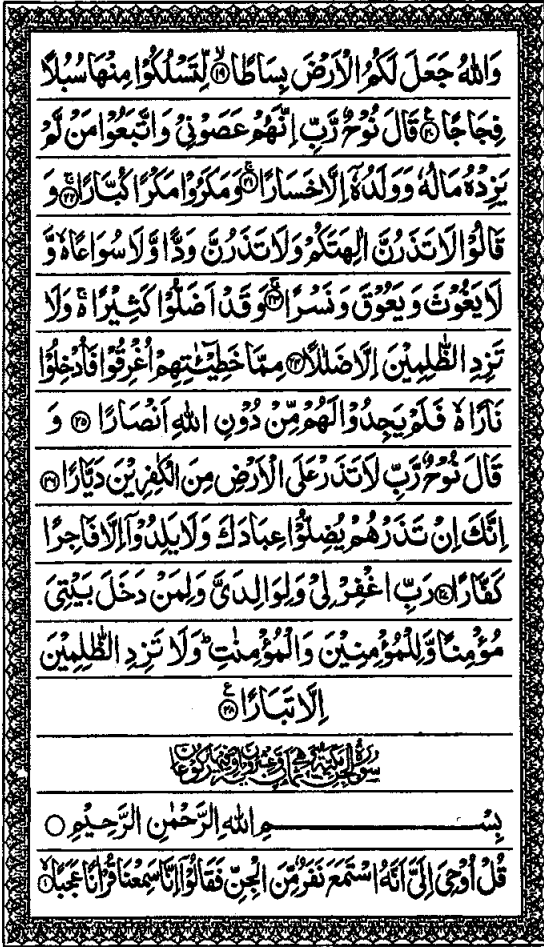 وَاللّٰهُ جَعَلَ لَكُمُ الْاَرْضَ بِسَاطًا ۙ﴿۱۹﴾ لِّتَسْلُكُوْا مِنْهَا سُبُلًا
فِجَاجًا ﴿۲۰﴾ قَالَ نُوْحٌ رَّبِّ اِنَّهُمْ عَصَوْنِيْ وَاتَّبَعُوْا مَنْ لَّمْ
يَزِدْهُ مَالُهٗ وَوَلَدُهٗۤ اِلَّا خَسَارًا ۚ﴿۲۱﴾ وَمَكَرُوْا مَكْرًا كُبَّارًا ۚ﴿۲۲﴾ وَ
قَالُوْا لَا تَذَرُنَّ اٰلِهَتَكُمْ وَلَا تَذَرُنَّ وَدًّا وَّلَا سُوَاعًا ۙ وَّ
لَا يَغُوْثَ وَيَعُوْقَ وَنَسْرًا ۚ﴿۲۳﴾ وَقَدْ اَضَلُّوْا كَثِيْرًا ۚ وَلَا
تَزِدِ الظّٰلِمِيْنَ اِلَّا ضَلٰلًا ﴿۲۴﴾ مِمَّا خَطِيْٓـٰٔتِهِمْ اُغْرِقُوْا فَاُدْخِلُوْا
نَارًا ۙ فَلَمْ يَجِدُوْا لَهُمْ مِّنْ دُوْنِ اللّٰهِ اَنْصَارًا ﴿۲۵﴾ وَ
قَالَ نُوْحٌ رَّبِّ لَا تَذَرْ عَلَى الْاَرْضِ مِنَ الْكٰفِرِيْنَ دَيَّارًا ﴿۲۶﴾
اِنَّكَ اِنْ تَذَرْهُمْ يُضِلُّوْا عِبَادَكَ وَلَا يَلِدُوْۤا اِلَّا فَاجِرًا
كَفَّارًا ﴿۲۷﴾ رَبِّ اغْفِرْ لِيْ وَلِوَالِدَيَّ وَلِمَنْ دَخَلَ بَيْتِيَ
مُؤْمِنًا وَّلِلْمُؤْمِنِيْنَ وَالْمُؤْمِنٰتِ ؕ وَلَا تَزِدِ الظّٰلِمِيْنَ
اِلَّا تَبَارًا ﴿۲۸﴾ ع
سُوْرَةُ الْجِنِّ مَكِّيَّةٌ
بِسْمِ اللّٰهِ الرَّحْمٰنِ الرَّحِيْمِ ○
قُلْ اُوْحِيَ اِلَيَّ اَنَّهُ اسْتَمَعَ نَفَرٌ مِّنَ الْجِنِّ فَقَالُوْۤا اِنَّا سَمِعْنَا قُرْاٰنًا عَجَبًا ۙ﴿۱﴾